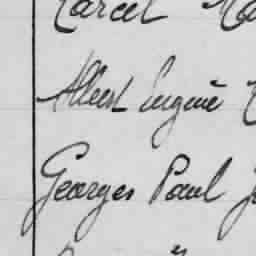 Marcel
Albert Eugène
Georges Paul